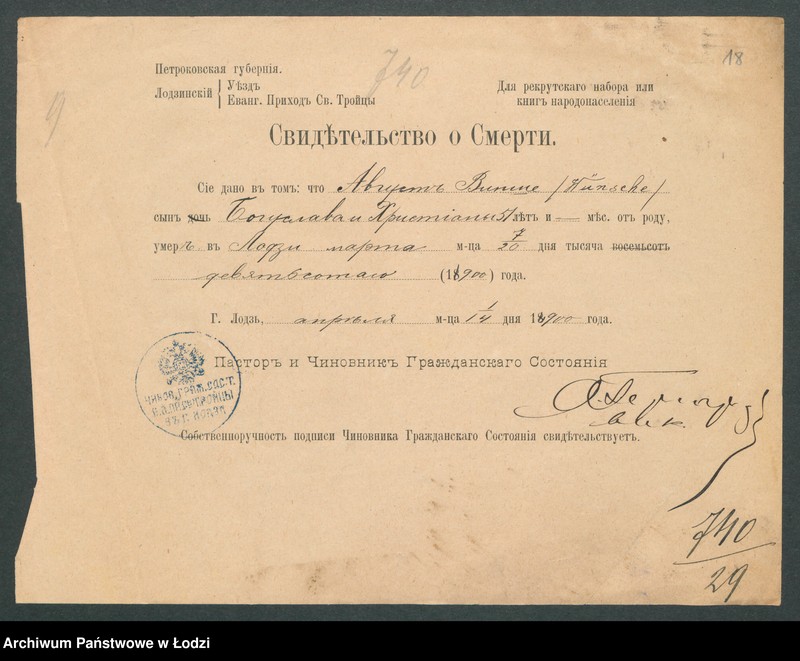 18
740
9
Петроковская губернія.
Лодзинскій { Уѣздъ
Еванг. Приходъ Св. Тройцы
Для рекрутскаго набора или
книгъ народонаселенія
Свидѣтельство о Смерти.
Сіе дано въ томъ: что Августъ Винше /Wünsche/
сынъ дочь Богуслава и Христіаны 51 лѣтъ и — мѣс. отъ роду,
умеръ въ Лодзи марта м-ца 7/20 дня тысяча восемьсотъ
девятьсотаго (1900) года.
Г. Лодзь, апрѣля м-ца 1/14 дня 1900 года.
Пасторъ и Чиновникъ Гражданскаго Состоянія
Собственноручность подписи Чиновника Гражданскаго Состоянія свидѣтельствуетъ.
740
29
Archiwum Państwowe w Łodzi